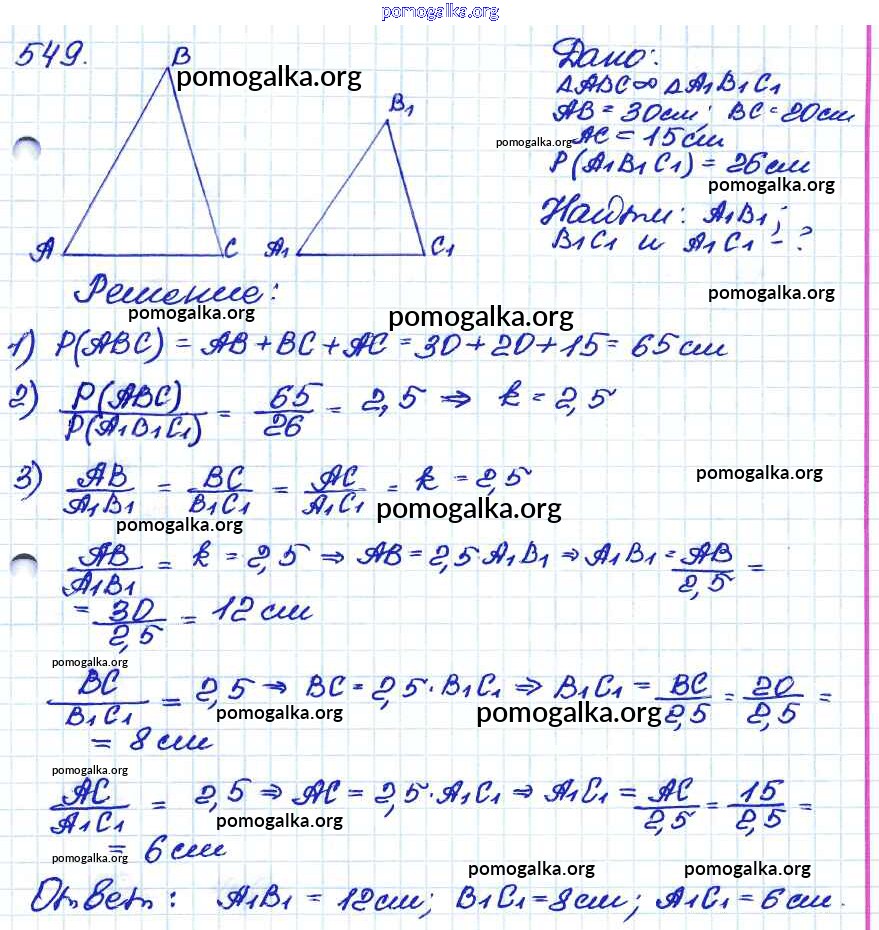 pomogalka.org
549.
B
pomogalka.org
A
C
B₁
A₁
C₁
Дано:
△ABC ∞ △A₁B₁C₁
AB = 30см; BC = 20см
pomogalka.org
AC = 15см
P(A₁B₁C₁) = 26см
pomogalka.org
Найти: A₁B₁;
B₁C₁ и A₁C₁ - ?
Решение:
pomogalka.org
pomogalka.org
pomogalka.org
1) P(ABC) = AB + BC + AC = 30 + 20 + 15 = 65 см
2) P(ABC)/P(A₁B₁C₁) = 65/26 = 2,5 ⇒ k = 2,5
3) AB/A₁B₁ = BC/B₁C₁ = AC/A₁C₁ = k = 2,5
pomogalka.org
pomogalka.org
pomogalka.org
AB/A₁B₁ = k = 2,5 ⇒ AB = 2,5·A₁B₁ ⇒ A₁B₁ = AB/2,5 =
= 30/2,5 = 12 см
pomogalka.org
BC/B₁C₁ = 2,5 ⇒ BC = 2,5·B₁C₁ ⇒ B₁C₁ = BC/2,5 = 20/2,5 =
pomogalka.org
pomogalka.org
= 8 см
pomogalka.org
AC/A₁C₁ = 2,5 ⇒ AC = 2,5·A₁C₁ ⇒ A₁C₁ = AC/2,5 = 15/2,5 =
pomogalka.org
= 6 см
pomogalka.org
pomogalka.org
pomogalka.org
Ответ: A₁B₁ = 12см; B₁C₁ = 8см; A₁C₁ = 6 см.